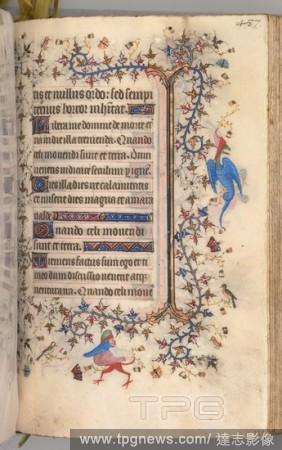 487
tis et nullus ordo: sed sempi
ternus horror inhitat.
Libera me domine de morte et
na in die illa tremenda. Quando
celi mouendi sunt et terra. Dum
ueneris iudicare seculum p igne.
Dies illa dies ire calamitatis
et miserie dies magna et amara
ualde
Quando celi mouendi
sunt et terra.
Tremens factus sum ego et ti
meo dum discussio uenerit atq;
uentura ira. Quando celi moue
TPG
www.tpgnews.com/ 達志影像